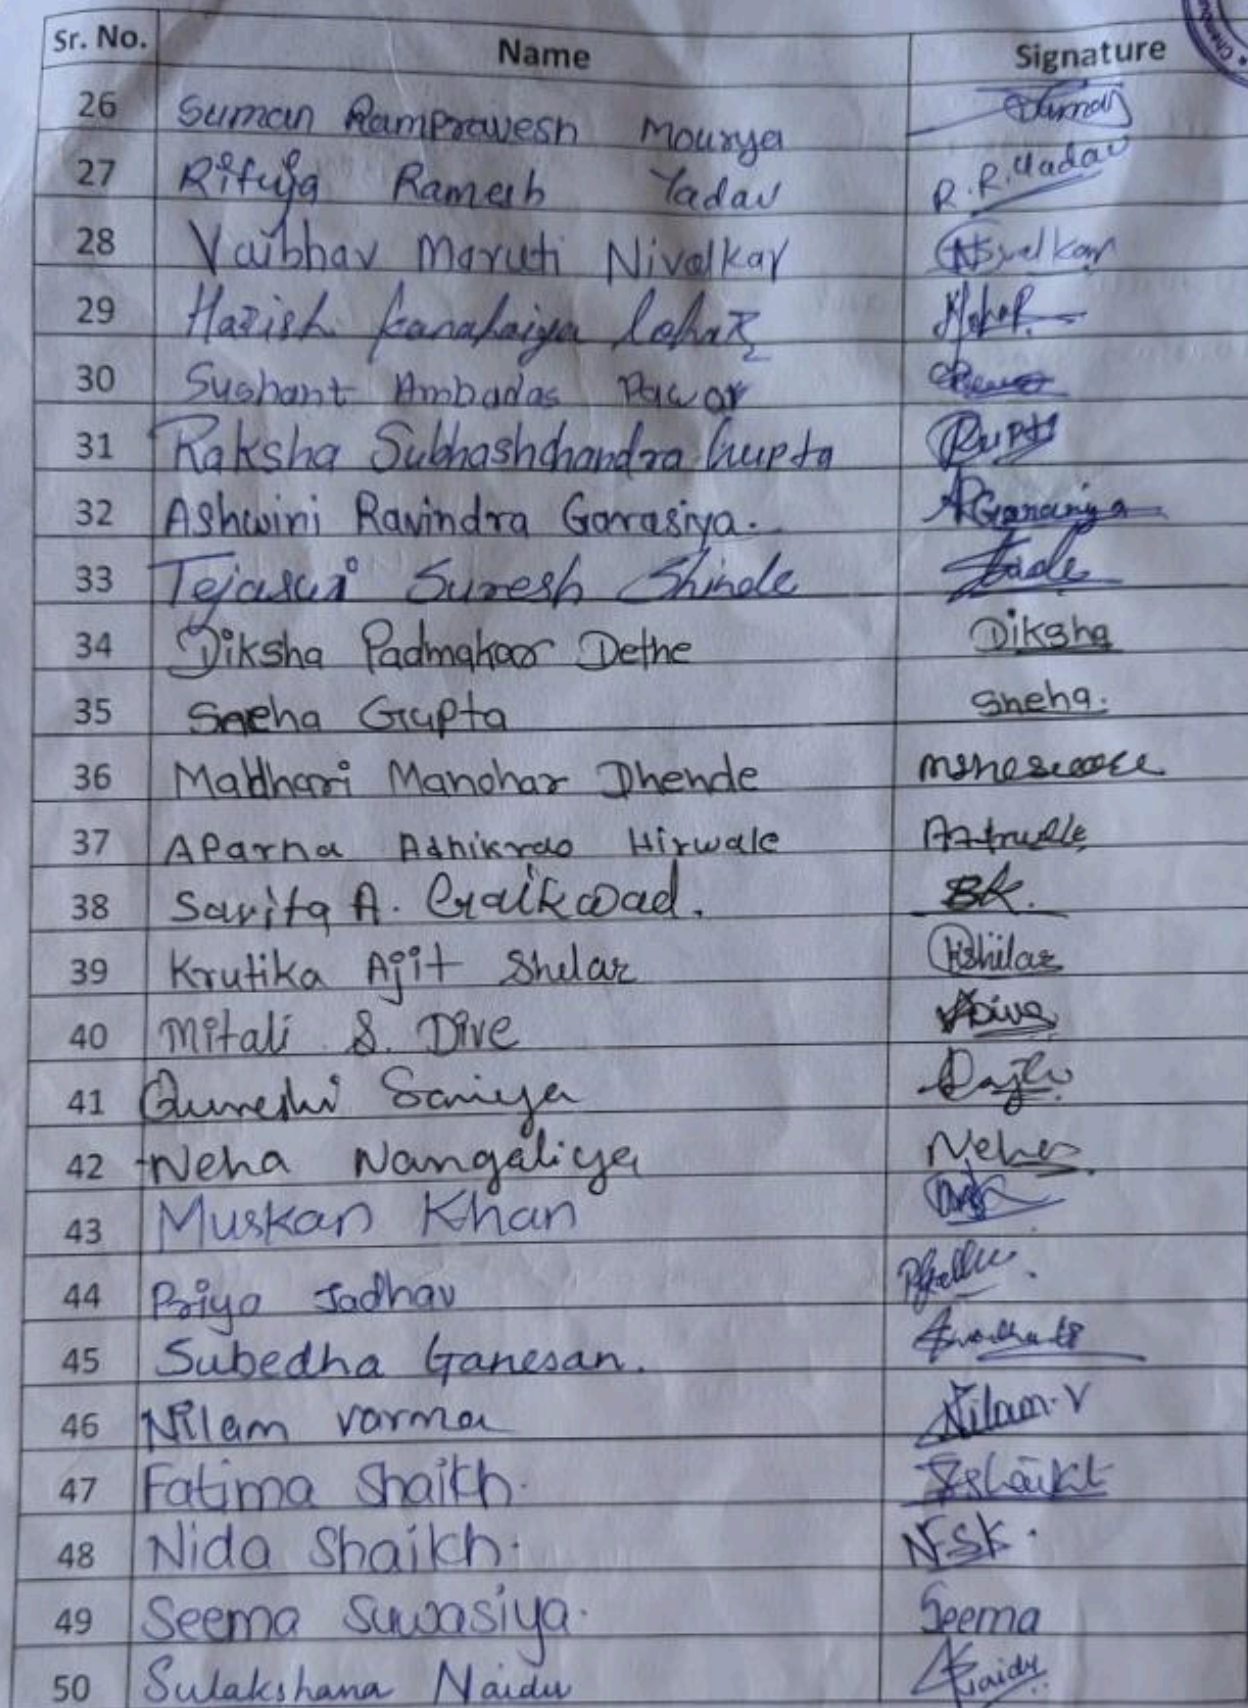 Sr. No. Name Signature
26 Suman Ramprawesh Mourya Suman
27 Rituja Ramesh Yadav R.R.Yadav
28 Vaibhav Maruti Nivalkar Nivalkar
29 Harish kanahaiya lohar
30 Sushant Ambadas Pawar
31 Raksha Subhashchandra Gupta
32 Ashwini Ravindra Garasiya. ARGarasiya
33 Tejasvi Suresh Shinde
34 Diksha Padmakaar Dethe Diksha
35 Sneha Gupta Sneha.
36 Madhari Manohar Dhende
37 Aparna Adhikrao Hirwale
38 Sarita A. Gaikwad.
39 Krutika Ajit Shelar
40 Mitali S. Dive
41 Qureshi Saniya
42 Neha Nangaliya Neha
43 Muskan Khan
44 Priya Jadhav
45 Subedha Ganesan.
46 Nilam varma Nilam.V
47 Fatima Shaikh. Fshaikh
48 Nida Shaikh. NFSK.
49 Seema Suwasiya. Seema
50 Sulakshana Naidu Naidu